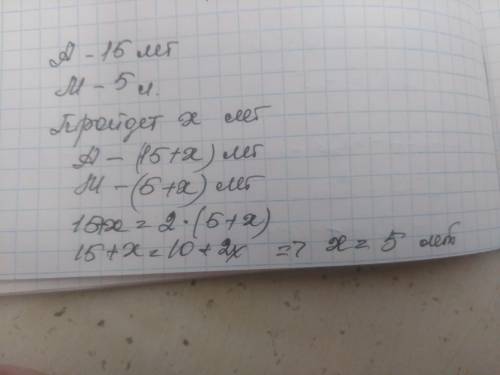 А – 15 лет
М – 5 л.
Пройдет x лет
А – (15+x) лет
М – (5+x) лет
15+x = 2·(5+x)
15+x = 10+2x => x = 5 лет